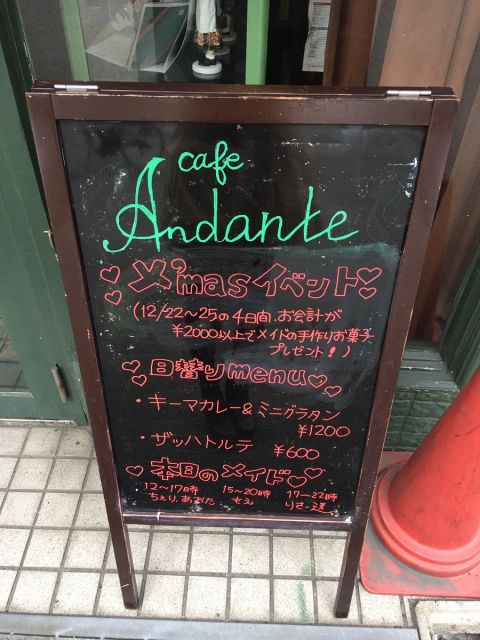 cafe
Andante
X'masイベント
(12/22〜25の4日間、お会計が
¥2000以上でメイドの手作りお菓子
プレゼント！)
日替りmenu
・キーマカレー&ミニグラタン
¥1200
・ザッハトルテ ¥600
本日のメイド
12〜17時 15〜20時 17〜22時
ちぇり、あおた